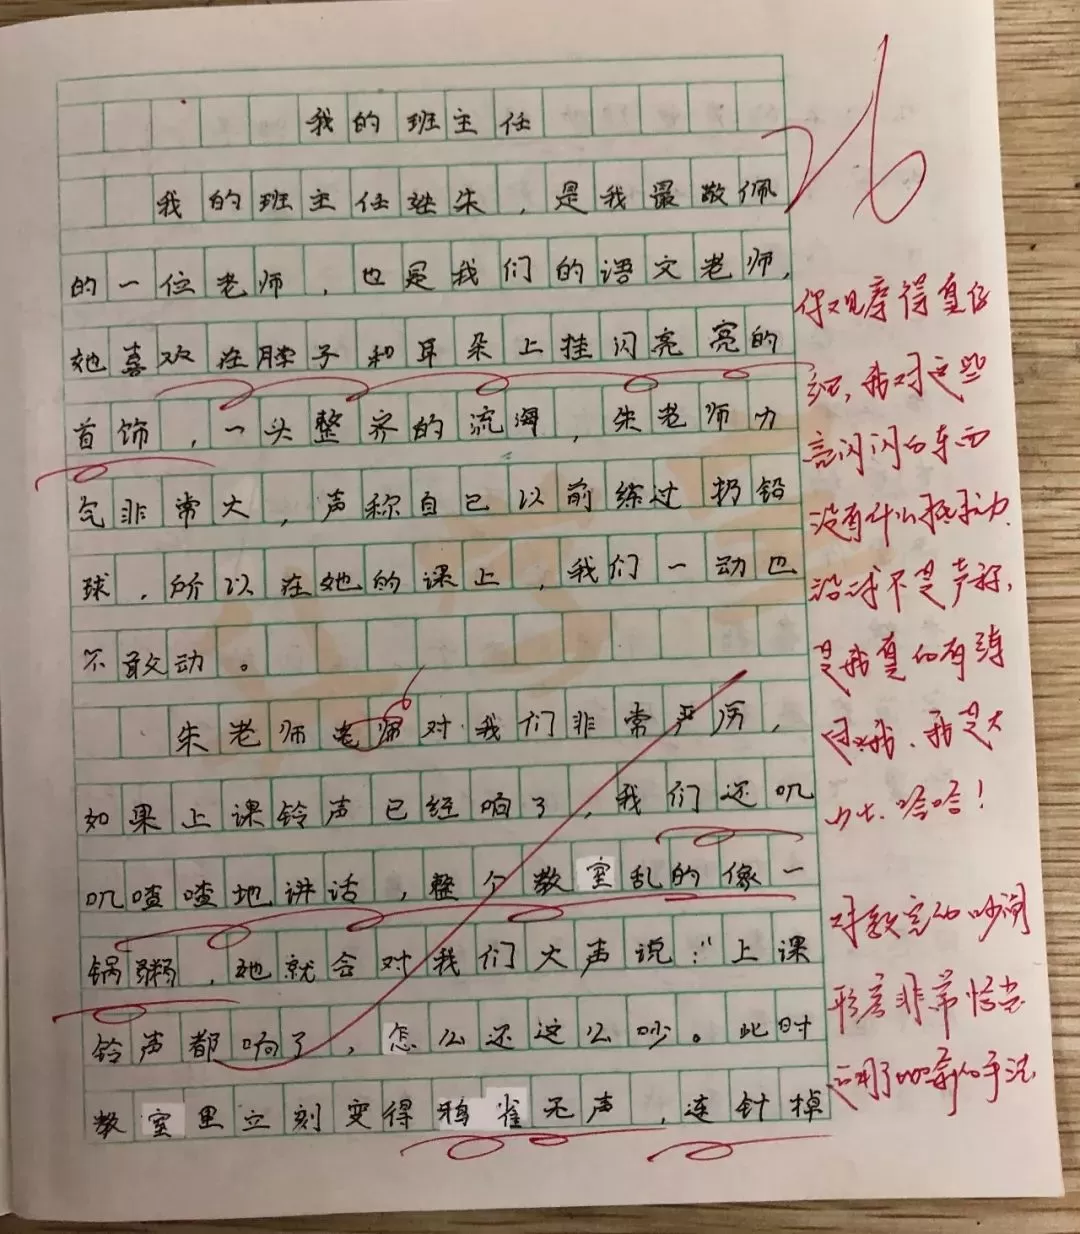 26
我的班主任
我的班主任姓朱，是我最敬佩
的一位老师，也是我们的语文老师，
她喜欢在脖子和耳朵上挂闪亮亮的
首饰，一头整齐的流海，朱老师力
气非常大，声称自己以前练过扔铅
球，所以在她的课上，我们一动也
不敢动。
朱老师老师对我们非常严厉，
如果上课铃声已经响了，我们还叽
叽喳喳地讲话，整个教室乱的像一
锅粥，她就会对我们大声说：“上课
铃声都响了，怎么还这么吵。此时
教室里立刻变得鸦雀无声，连针掉
你观摩得真仔
细，我对这些
亮闪闪的东西
没有什么抵抗力.
铅球不是声称，
是我真的有练
过哦、我是大
力士.哈哈！
对教室的吵闹
形容非常恰当
运用了比喻的手法